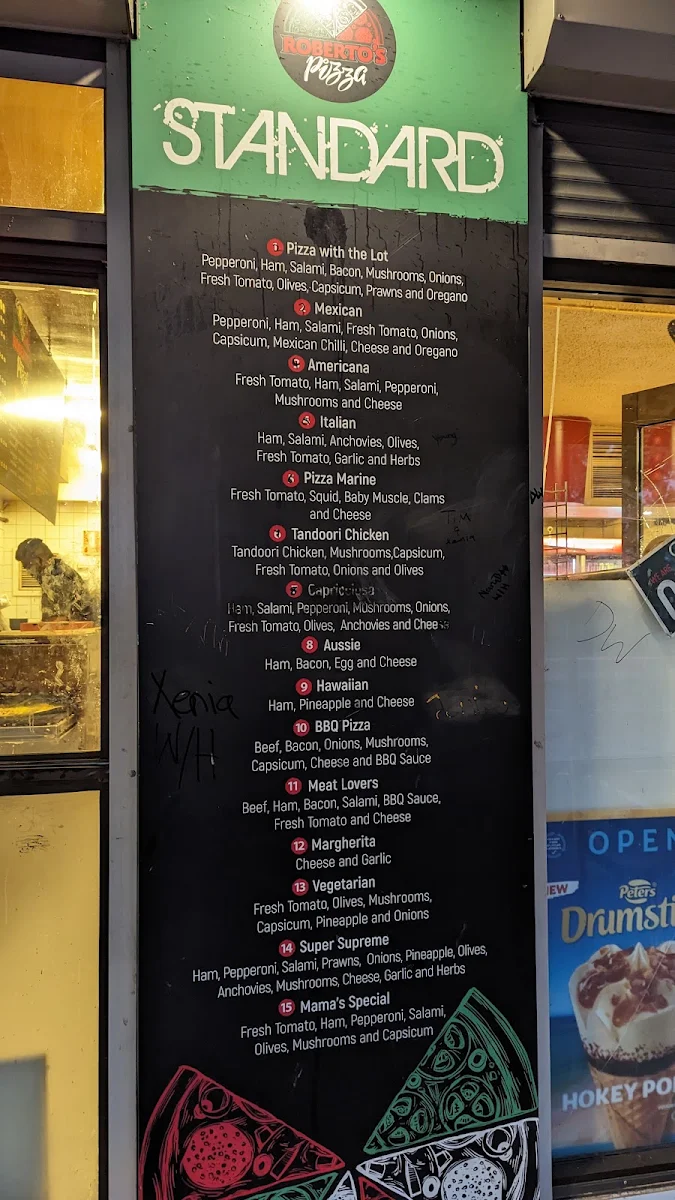 ROBERTO'S
Pizza
STANDARD
1 Pizza with the Lot
Pepperoni, Ham, Salami, Bacon, Mushrooms, Onions,
Fresh Tomato, Olives, Capsicum, Prawns and Oregano
2 Mexican
Pepperoni, Ham, Salami, Fresh Tomato, Onions,
Capsicum, Mexican Chilli, Cheese and Oregano
3 Americana
Fresh Tomato, Ham, Salami, Pepperoni,
Mushrooms and Cheese
4 Italian
Ham, Salami, Anchovies, Olives,
Fresh Tomato, Garlic and Herbs
5 Pizza Marine
Fresh Tomato, Squid, Baby Muscle, Clams
and Cheese
6 Tandoori Chicken
Tandoori Chicken, Mushrooms,Capsicum,
Fresh Tomato, Onions and Olives
7 Capricciosa
Ham, Salami, Pepperoni, Mushrooms, Onions,
Fresh Tomato, Olives, Anchovies and Cheese
8 Aussie
Ham, Bacon, Egg and Cheese
9 Hawaiian
Ham, Pineapple and Cheese
10 BBQ Pizza
Beef, Bacon, Onions, Mushrooms,
Capsicum, Cheese and BBQ Sauce
11 Meat Lovers
Beef, Ham, Bacon, Salami, BBQ Sauce,
Fresh Tomato and Cheese
12 Margherita
Cheese and Garlic
13 Vegetarian
Fresh Tomato, Olives, Mushrooms,
Capsicum, Pineapple and Onions
14 Super Supreme
Ham, Pepperoni, Salami, Prawns, Onions, Pineapple, Olives,
Anchovies, Mushrooms, Cheese, Garlic and Herbs
15 Mama's Special
Fresh Tomato, Ham, Pepperoni, Salami,
Olives, Mushrooms and Capsicum
Xenia
W/H
DW
WE ARE
OPEN
NEW
Peters
Drumsti
HOKEY PO